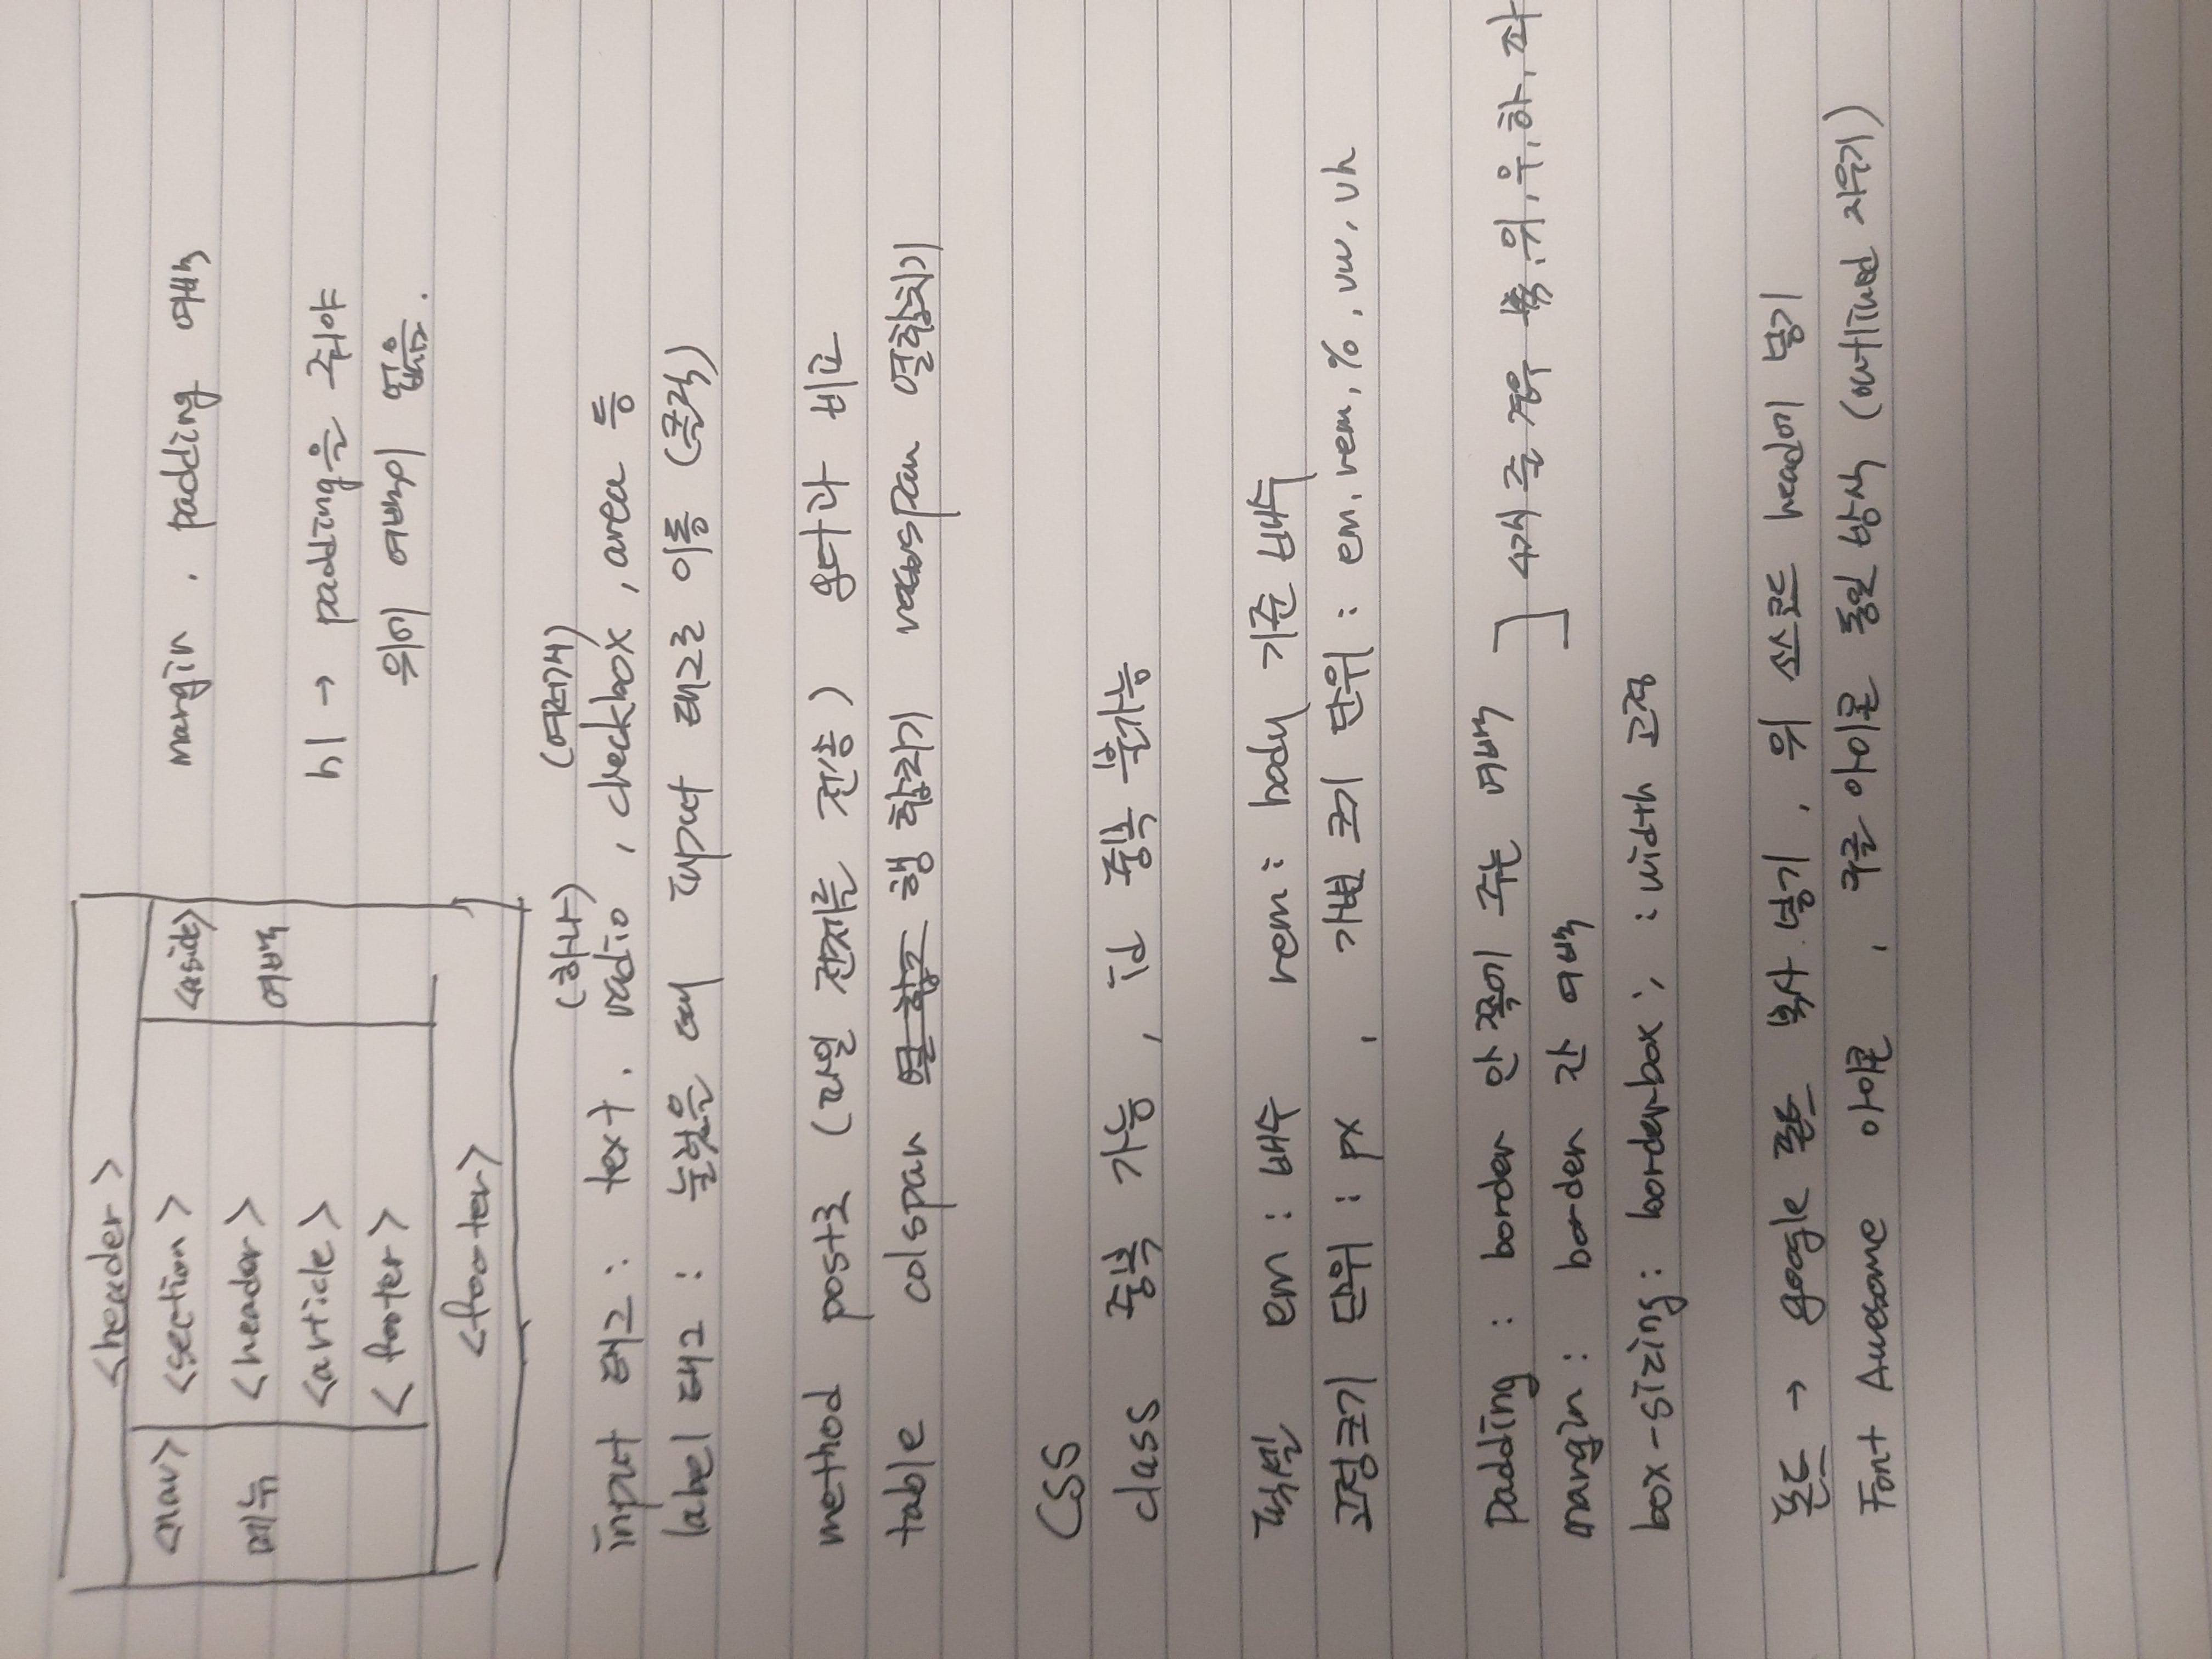 <header>
<nav>
메뉴
<section>
<header>
<article>
<footer>
<aside>
여백
<footer>
margin, padding 여백
h1 → padding을 줘야
위에 여백이 없음.
(하나) (여러개)
input 태그 : text, radio, checkbox, area 등
label 태그 : 눌렀을 때 input 태그로 이동 (클릭)
method post로 (파일 전체를 전송) 비교
table colspan 열 합 행 합치기 rowspan 열합치기
CSS
class 중복 가능, id 중복 불가능
픽셀 em : 배수 rem : body 기준 배수
고정크기 단위 : px, 가변 크기 단위 : em, rem, %, vw, vh
padding : border 안쪽에 주는 여백
margin : border 간 여백
4개 줄 경우 위, 우, 하, 좌
box-sizing : border-box ; : width 고정
폰트 → google 폰트 복사 넣기, 위 소스코드 head에 넣기
Font Awesome 아이콘, 구글 아이콘 동일 방식 (outlined 지우기)